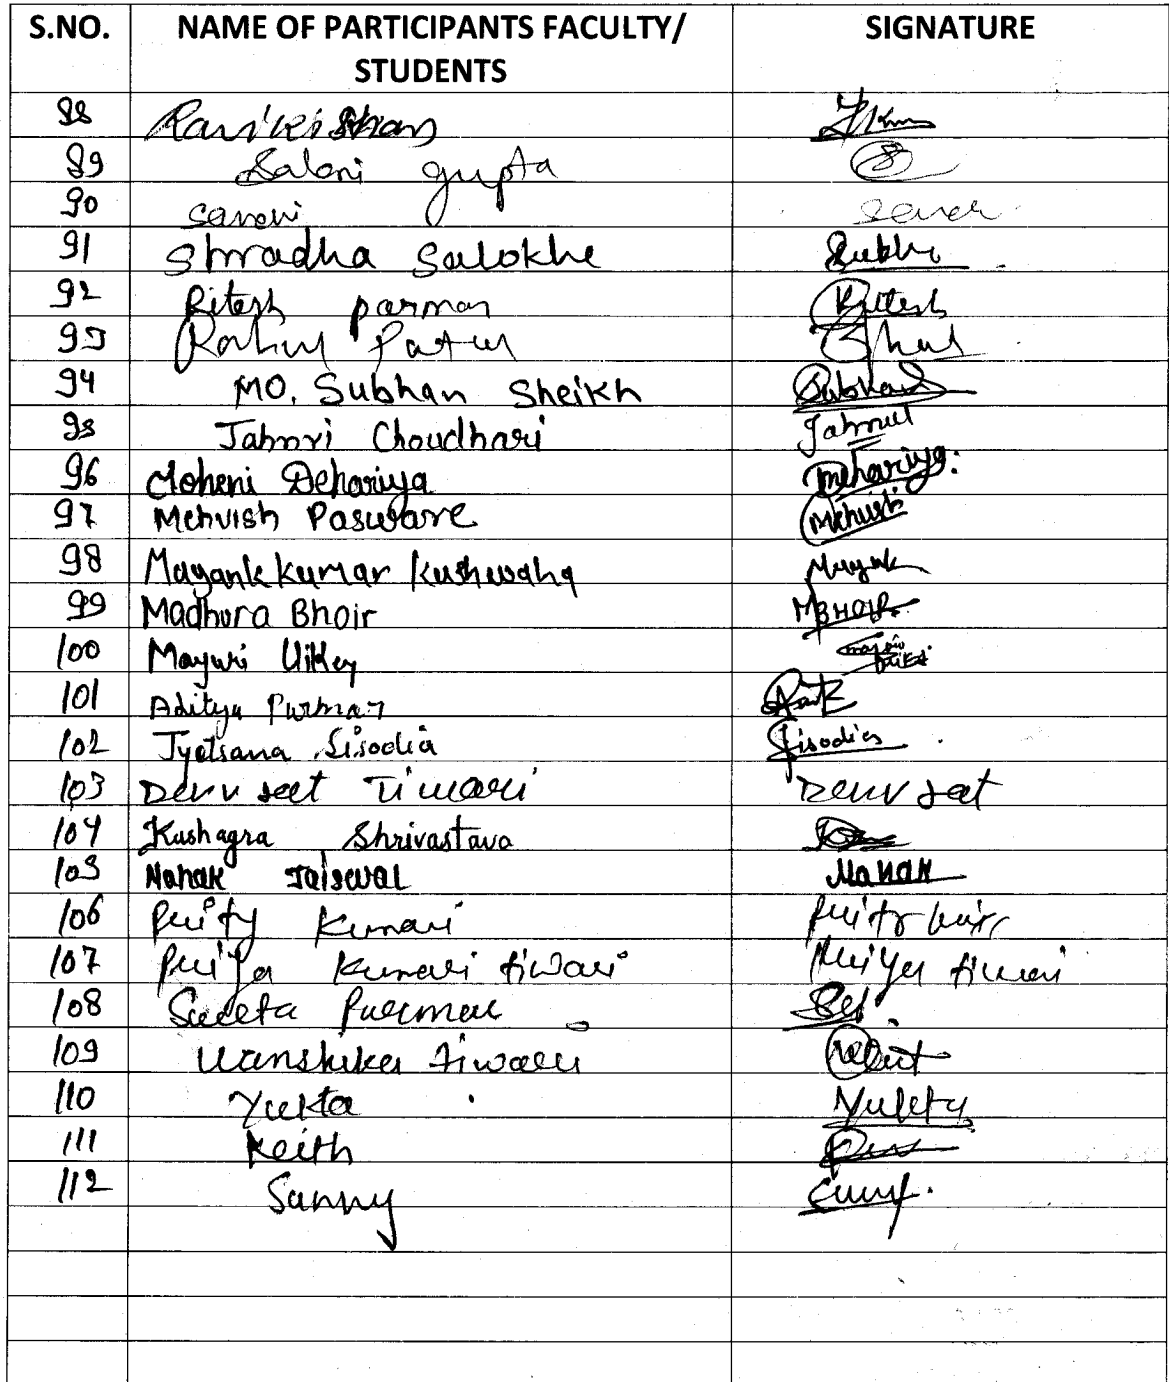 S.NO. NAME OF PARTICIPANTS FACULTY/ STUDENTS SIGNATURE
88 Ravikishan
89 Saloni gupta
90 saveri
91 Shradha Salokhe Subhi
92 Ritesh parmar Ritesh
93 Rahul Patel
94 MO. Subhan Sheikh Subhan
95 Jahnvi Choudhari Jahnvi
96 Moheni Dehariya Dehariya.
97 Mehvish Paswane Mehvish
98 Mayank kumar Kushwaha Mayank
99 Madhura Bhoir MBHOIR
100 Mayuri Uikey Mayuri Uikey
101 Aditya Parmar
102 Jyotsana Sisodia Sisodia
103 Devvrat Tiwari Devvrat
104 Kushagra Shrivastava
105 Nanak Jaiswal Nanak
106 Prity Kumari Prity
107 Priya Kumari tiwari Priya tiwari
108 Sweta Parmar
109 Vanshika tiwari
110 Yukta Yukta
111 Keith
112 Sanny